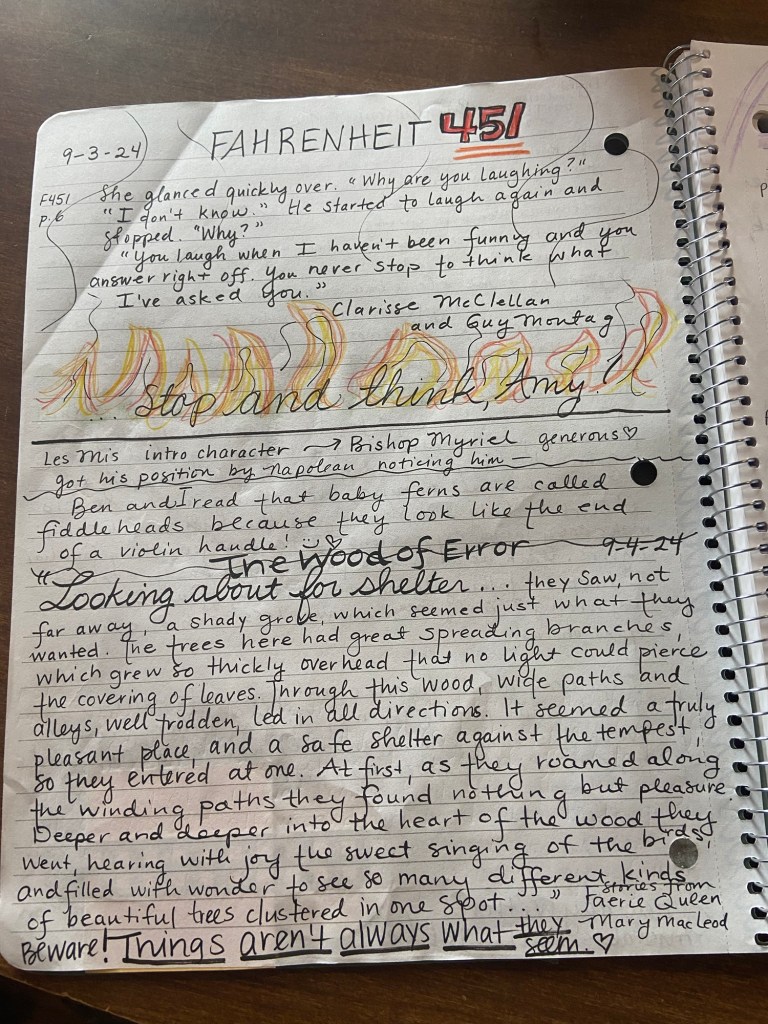 9-3-24
FAHRENHEIT 451
F451
p. 6
She glanced quickly over. "Why are you laughing?"
"I don't know." He started to laugh again and
stopped. "Why?"
"You laugh when I haven't been funny and you
answer right off. You never stop to think what
I've asked you."
-Clarisse McClellan
and Guy Montag
... Stop and think, Amy!
Les Mis intro character → Bishop Myriel generous ♡
got his position by Napolean noticing him —
Ben and I read that baby ferns are called
fiddleheads because they look like the end
of a violin handle! ♡
The Wood of Error 9-4-24
"Looking about for shelter... they saw, not
far away, a shady grove, which seemed just what they
wanted. The trees here had great spreading branches,
which grew so thickly overhead that no light could pierce
the covering of leaves. Through this wood, wide paths and
alleys, well trodden, led in all directions. It seemed a truly
pleasant place, and a safe shelter against the tempest,
so they entered at one. At first, as they roamed along
the winding paths they found nothing but pleasure.
Deeper and deeper into the heart of the wood they
went, hearing with joy the sweet singing of the birds,
and filled with wonder to see so many different kinds
of beautiful trees clustered in one spot...."
Stories from
Faerie Queen
Mary MacLeod
Beware! Things aren't always what they
seem. ♡